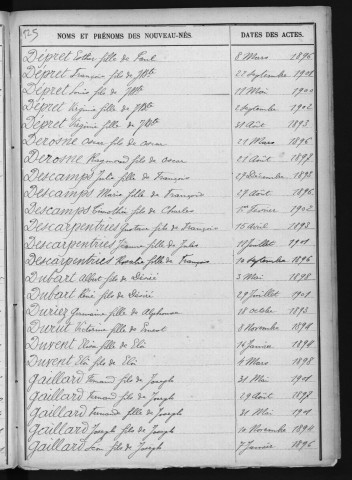 125
NOMS ET PRÉNOMS DES NOUVEAU-NÉS. DATES DES ACTES.
Dépret Esther fille de Paul 8 Mars 1896
Dépret François fils de JBte 22 Septembre 1901
Dépret Louis fils de JBte 18 Mai 1900
Dépret Régina fille de JBte 2 Septembre 1902
Dépret Virginie fille de JBte 31 Août 1893
Derosne Omer fils de Omer 21 Mars 1896
Derosne Raymond fils de Omer 22 Août 1897
Descamps Julia fille de François 27 Décembre 1898
Descamps Maria fille de François 27 Août 1896
Descamps Timothée fils de Charles 1er Février 1902
Descarpentries Gustave fils de François 15 Août 1893
Descarpentries Jeanne fille de Jules 10 Juillet 1901
Descarpentries Rosalie fille de François 10 Septembre 1896
Dubart Albert fils de Désiré 3 Mai 1898
Dubart René fils de Désiré 29 Juillet 1901
Duriez Germaine fille de Alphonse 18 Octobre 1893
Duriez Victorine fille de Ernest 3 Novembre 1894
Duvent Elisa fille de Eloi 14 Janvier 1894
Duvent Eloi fils de Eloi 4 Mars 1898
Gaillard Fernand fils de Joseph 31 Mai 1901
Gaillard Fernand fils de Joseph 29 Août 1897
Gaillard Fernande fille de Joseph 31 Mai 1901
Gaillard Joseph fils de Joseph 10 Novembre 1894
Gaillard Léon fils de Joseph 7 Janvier 1896